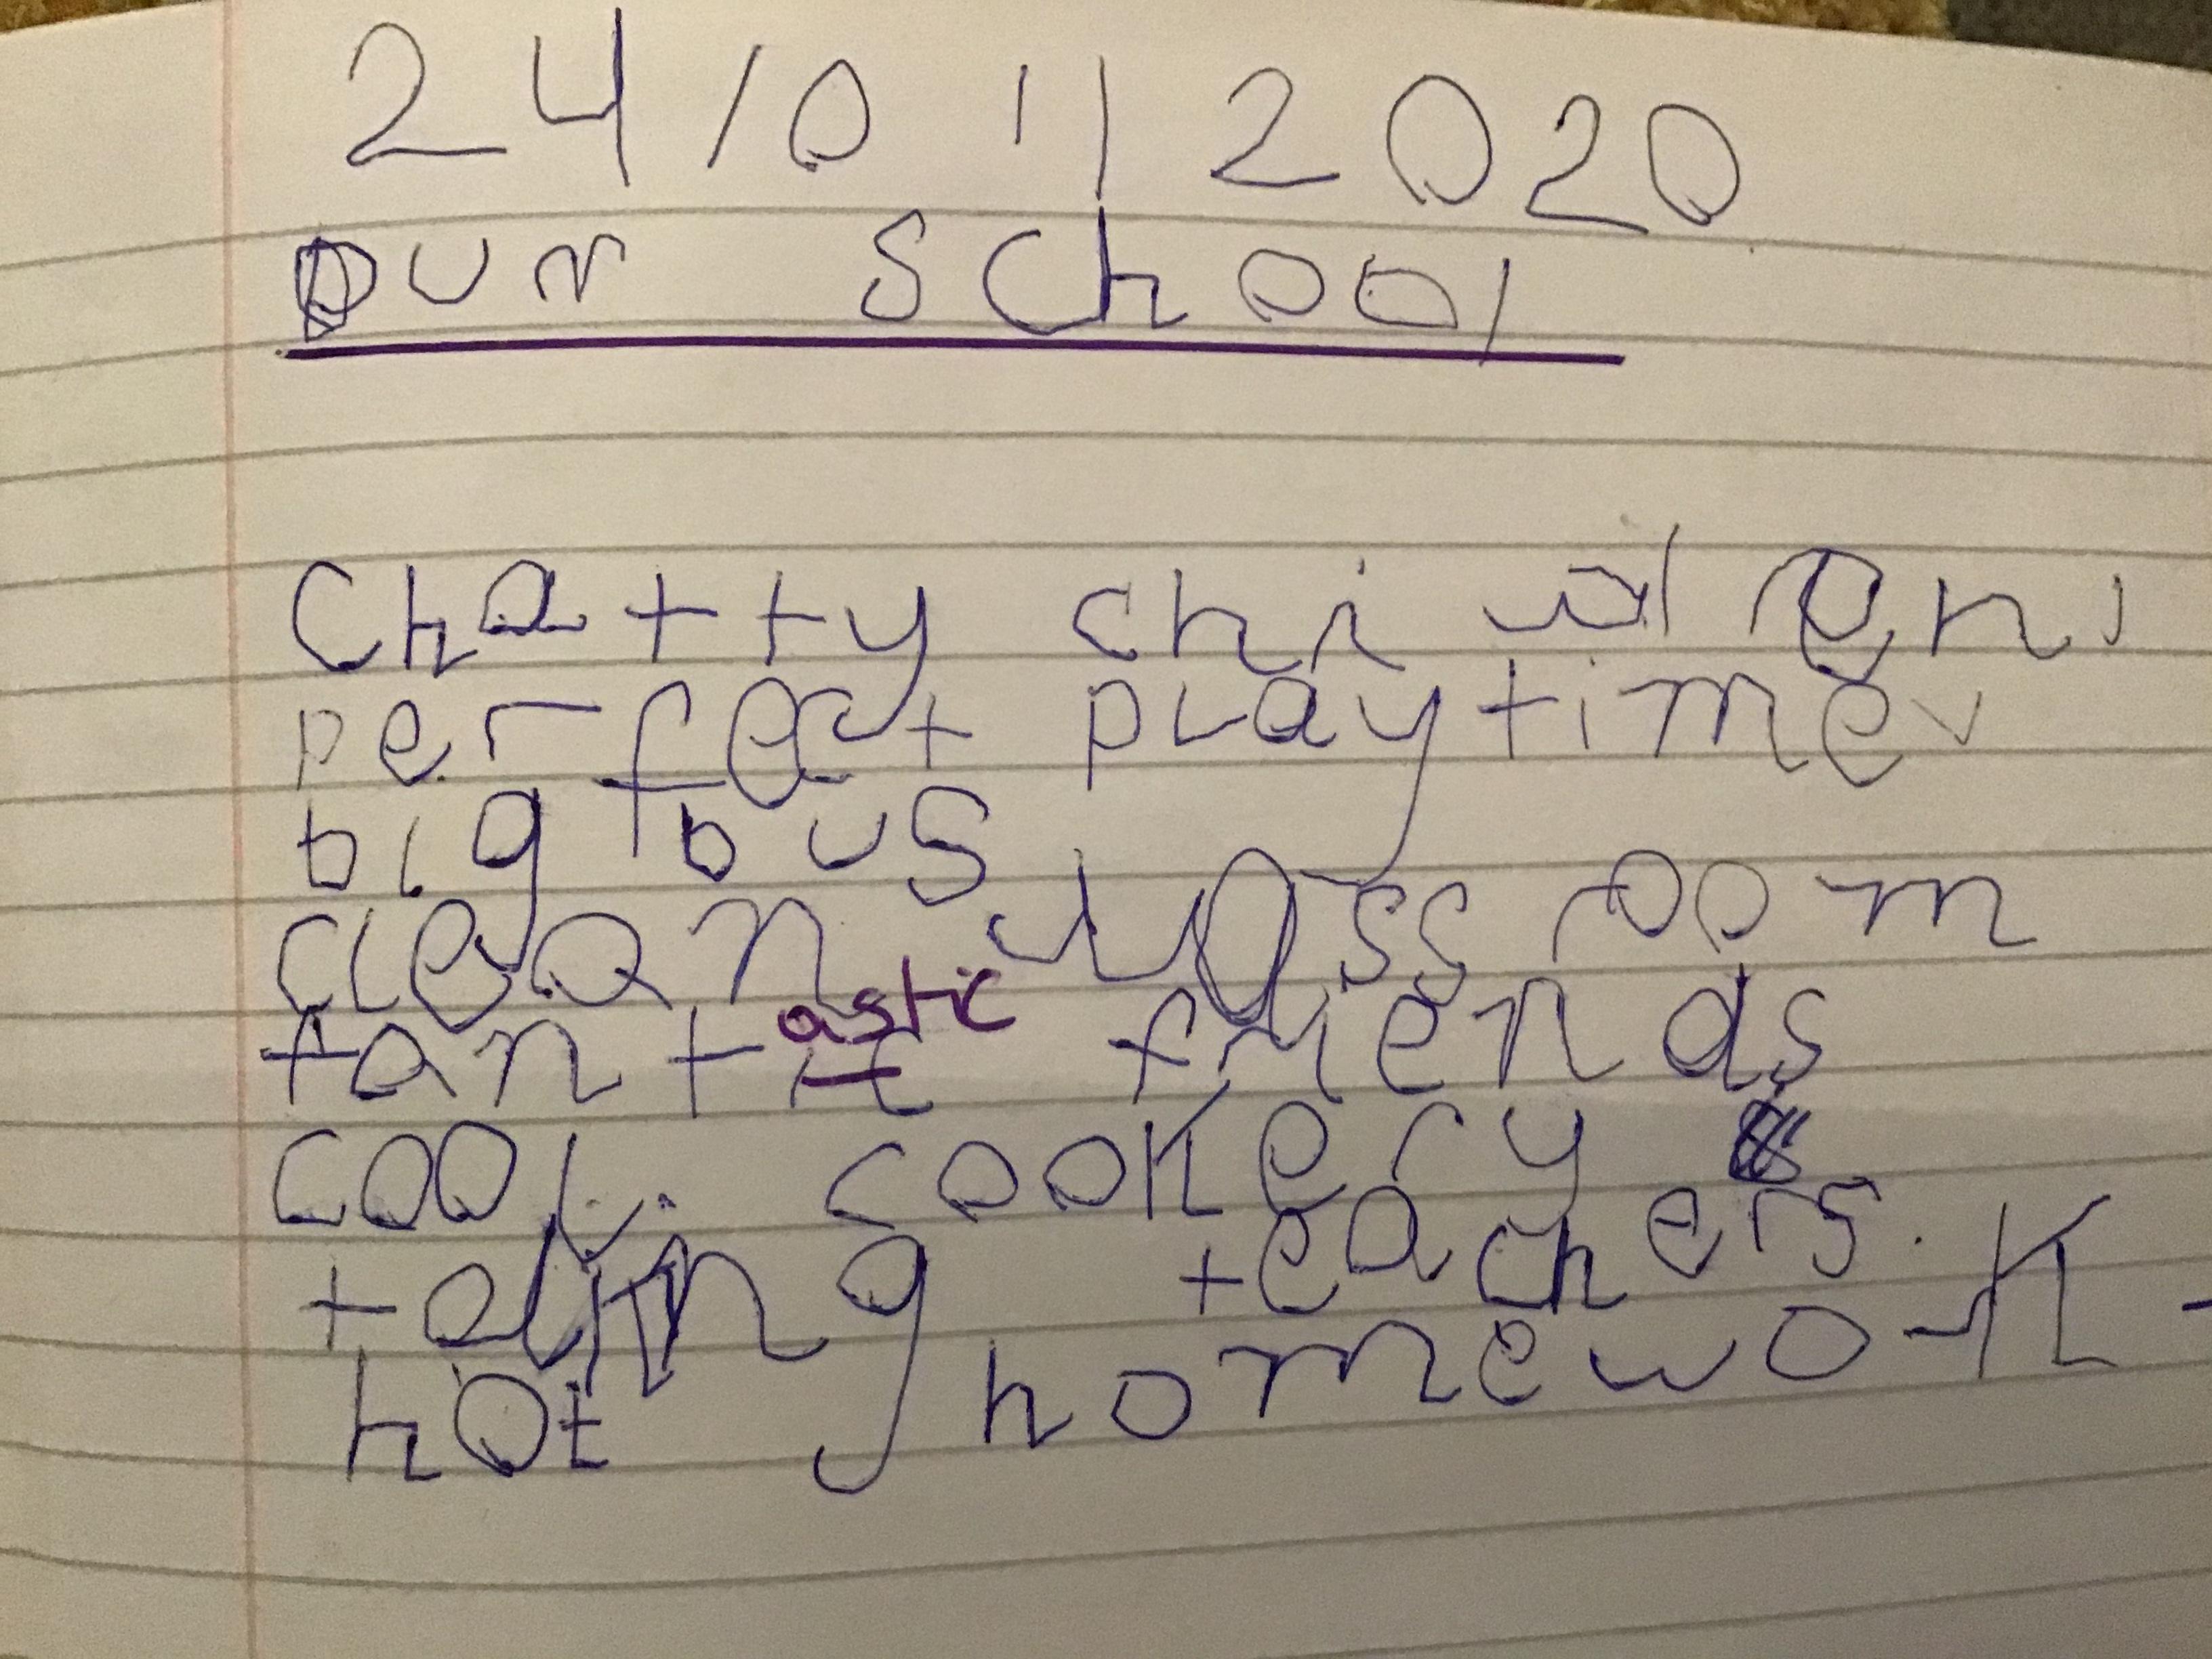 24/01/2020
our school
Chatty children,
perfect playtime,
big bus
clean classroom
fantastic friends
cool cookery
teachers.
hot homework